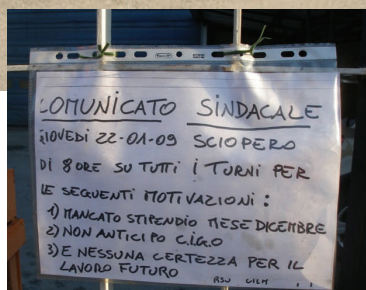 COMUNICATO SINDACALE
GIOVEDÌ 22-01-09 SCIOPERO
DI 8 ORE SU TUTTI I TURNI PER
LE SEGUENTI MOTIVAZIONI:
1) MANCATO STIPENDIO MESE DICEMBRE
2) NON ANTICIPO C.I.G.O
3) E NESSUNA CERTEZZA PER IL
LAVORO FUTURO
RSU